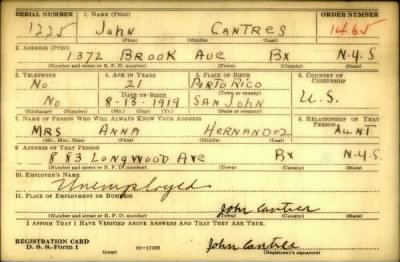 SERIAL NUMBER 1. NAME (Print) ORDER NUMBER
1225 John CANTRES 1465
(First) (Middle) (Last)
2. ADDRESS (Print)
1372 BROOK AVE BX N.Y.S
(Number and street or R. F. D. number) (Town) (County) (State)
3. TELEPHONE 4. AGE IN YEARS 5. PLACE OF BIRTH 6. COUNTRY OF CITIZENSHIP
No 21 PORTO RICO
DATE OF BIRTH (Town or county)
No 8-13-1919 SAN JOHN U.S.
(Exchange) (Number) (Mo.) (Day) (Yr.) (State or country)
7. NAME OF PERSON WHO WILL ALWAYS KNOW YOUR ADDRESS 8. RELATIONSHIP OF THAT PERSON
MRS ANNA HERNANDEZ AUNT
(Mr., Mrs., Miss) (First) (Middle) (Last)
9. ADDRESS OF THAT PERSON
883 LONGWOOD AVE BX N.Y.S
(Number and street or R. F. D. number) (Town) (County) (State)
10. EMPLOYER'S NAME
Unemployed
11. PLACE OF EMPLOYMENT OR BUSINESS
John Cantres
(Number and street or R. F. D. number) (Town) (County) (State)
I AFFIRM THAT I HAVE VERIFIED ABOVE ANSWERS AND THAT THEY ARE TRUE.
REGISTRATION CARD
D. S. S. Form 1 (over) 16—17105 John Cantres
(Registrant's signature)